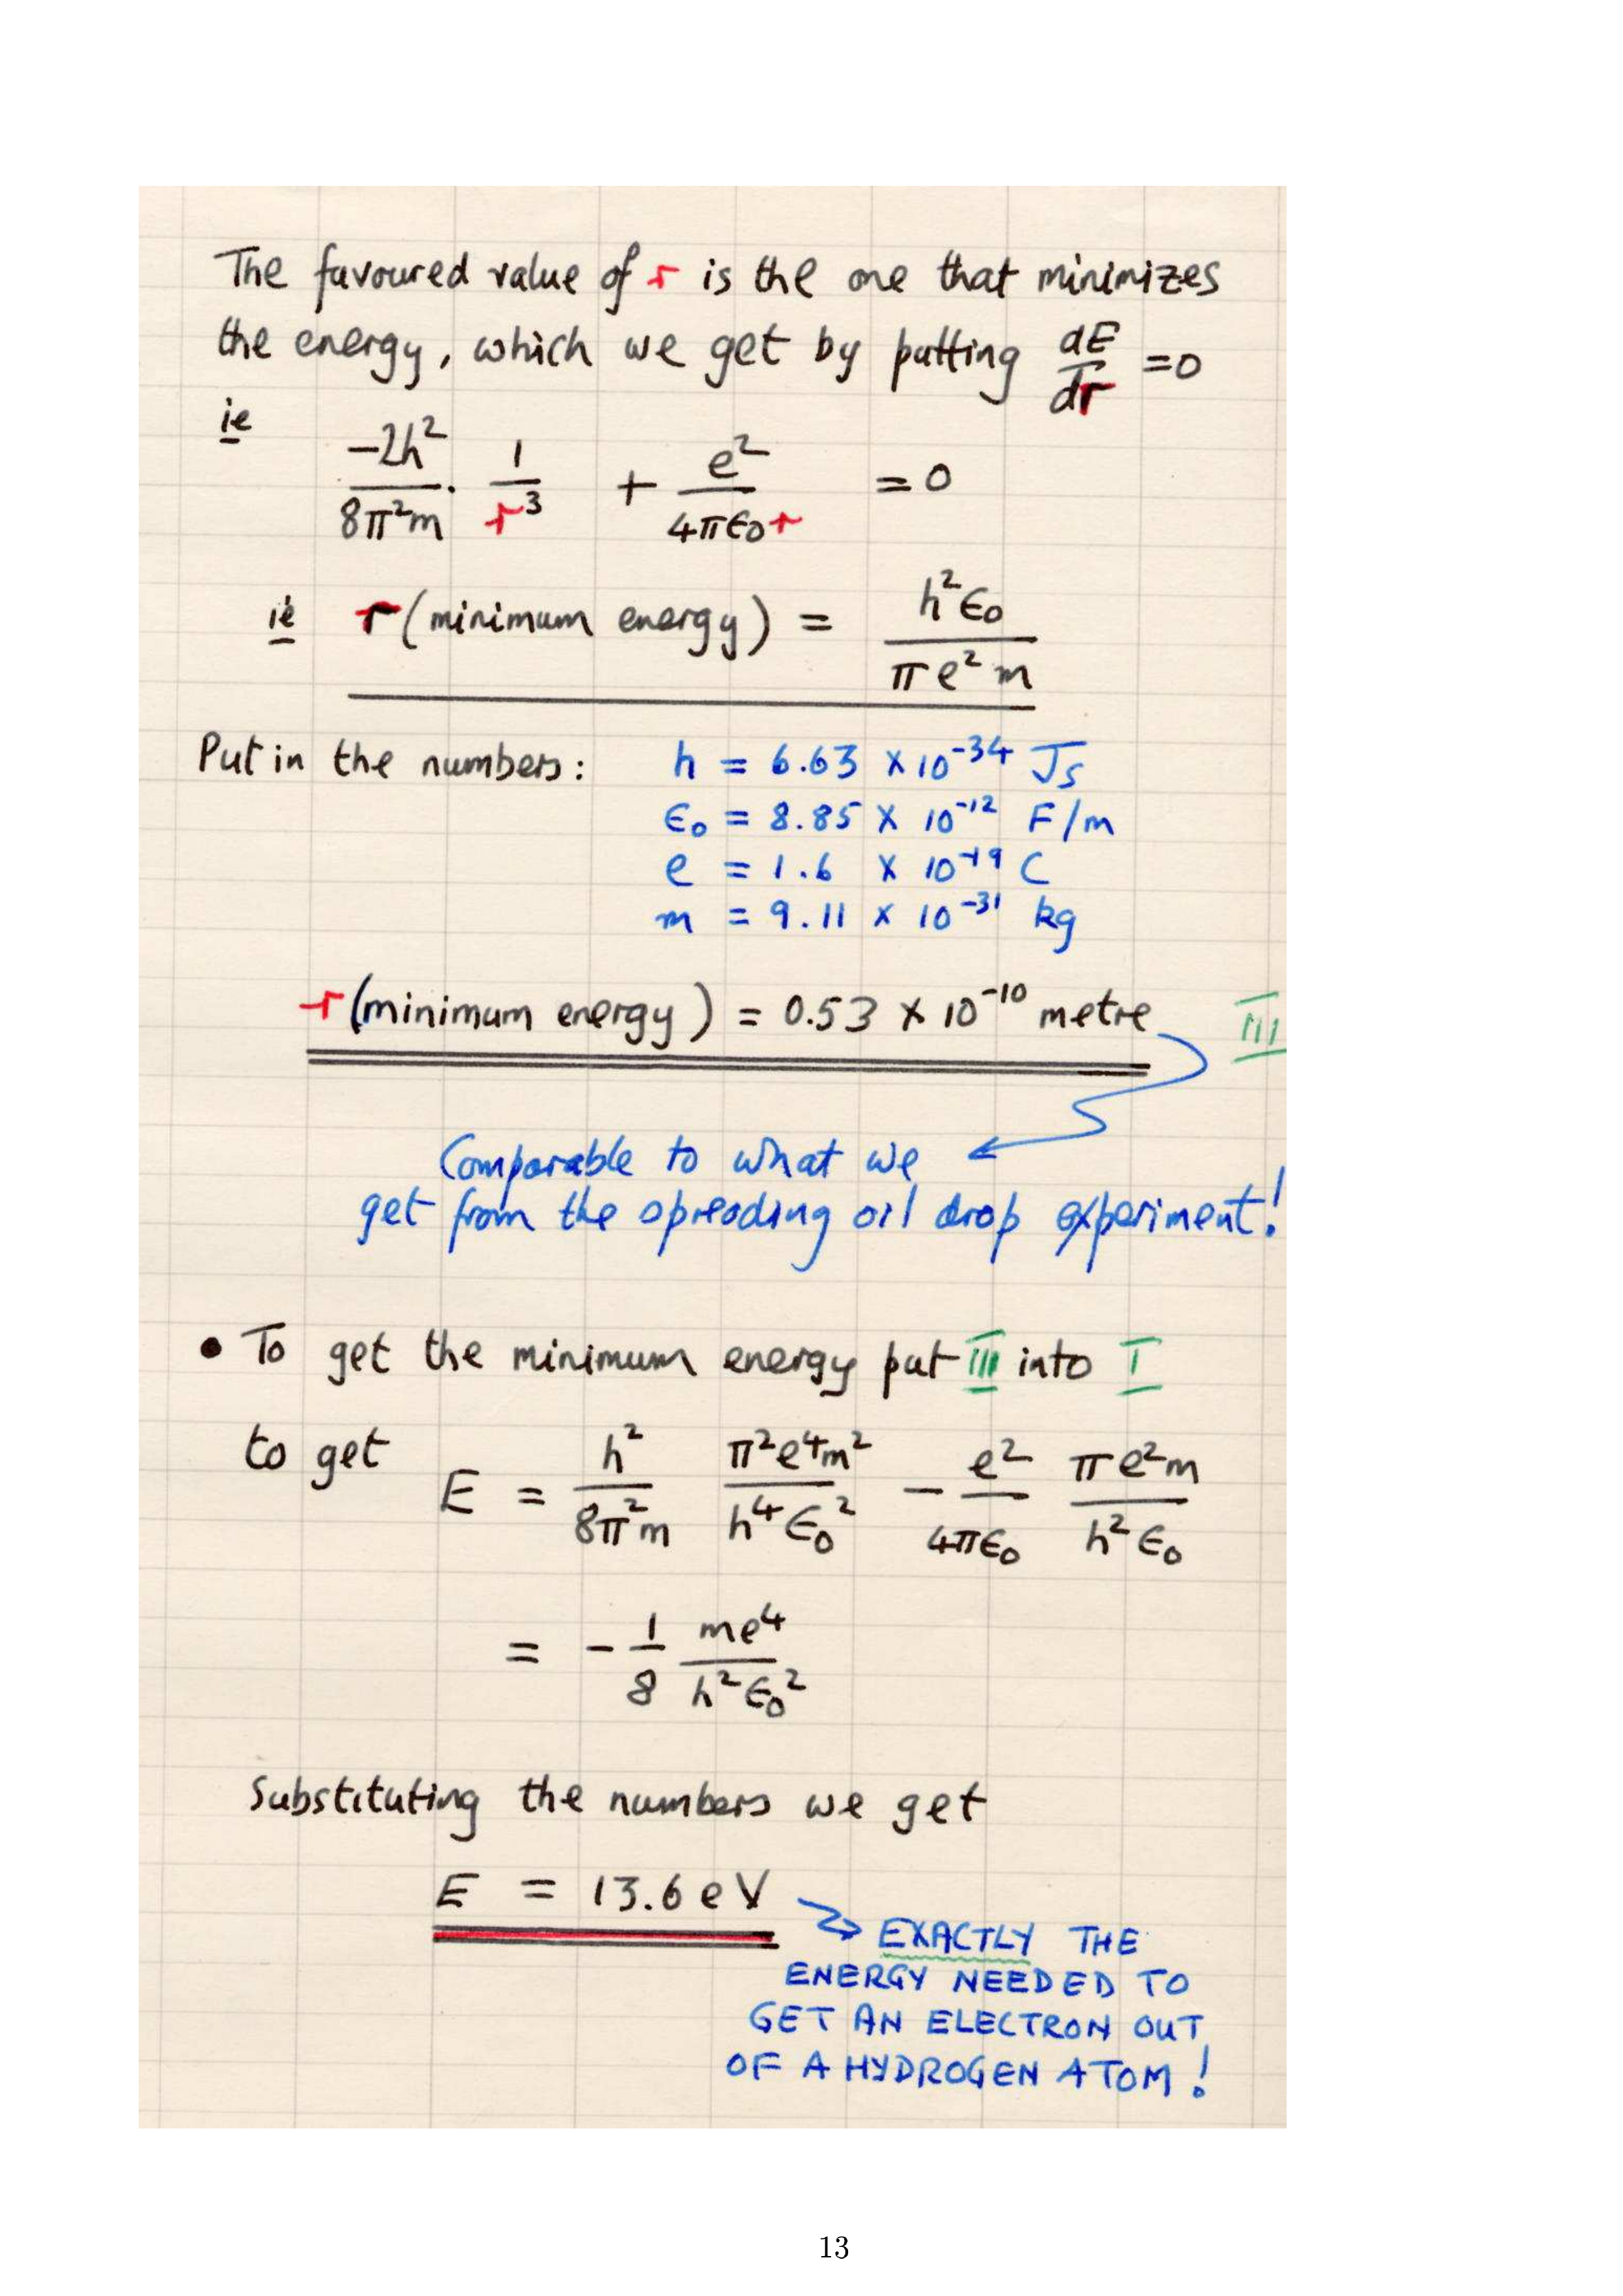 The favoured value of r is the one that minimizes
the energy, which we get by putting dE/dr = 0
ie
-2h²/8π²m · 1/r³ + e²/4πϵ₀r = 0
ie r (minimum energy) = h²ϵ₀/πe²m
Put in the numbers: h = 6.63 × 10⁻³⁴ Js
ϵ₀ = 8.85 × 10⁻¹² F/m
e = 1.6 × 10⁻¹⁹ C
m = 9.11 × 10⁻³¹ kg
r (minimum energy) = 0.53 × 10⁻¹⁰ metre III
Comparable to what we
get from the spreading oil drop experiment!
• To get the minimum energy put III into I
to get E = h²/8π²m π²e⁴m²/h⁴ϵ₀² - e²/4πϵ₀ πe²m/h²ϵ₀
= - 1/8 me⁴/h²ϵ₀²
Substituting the numbers we get
E = 13.6 eV
EXACTLY THE
ENERGY NEEDED TO
GET AN ELECTRON OUT
OF A HYDROGEN ATOM!
13